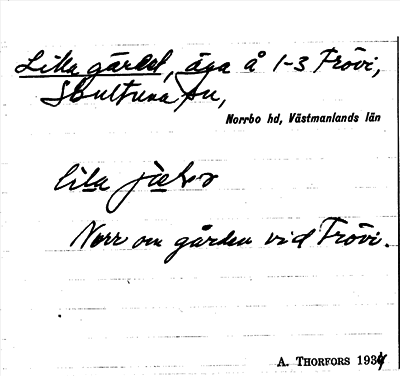 Lilla gärdet, äga å 1-3 Frövi,
Skultuna sn,
Norrbo hd, Västmanlands län
lila
Norr om gården vid Frövi.
A. THORFORS 1934